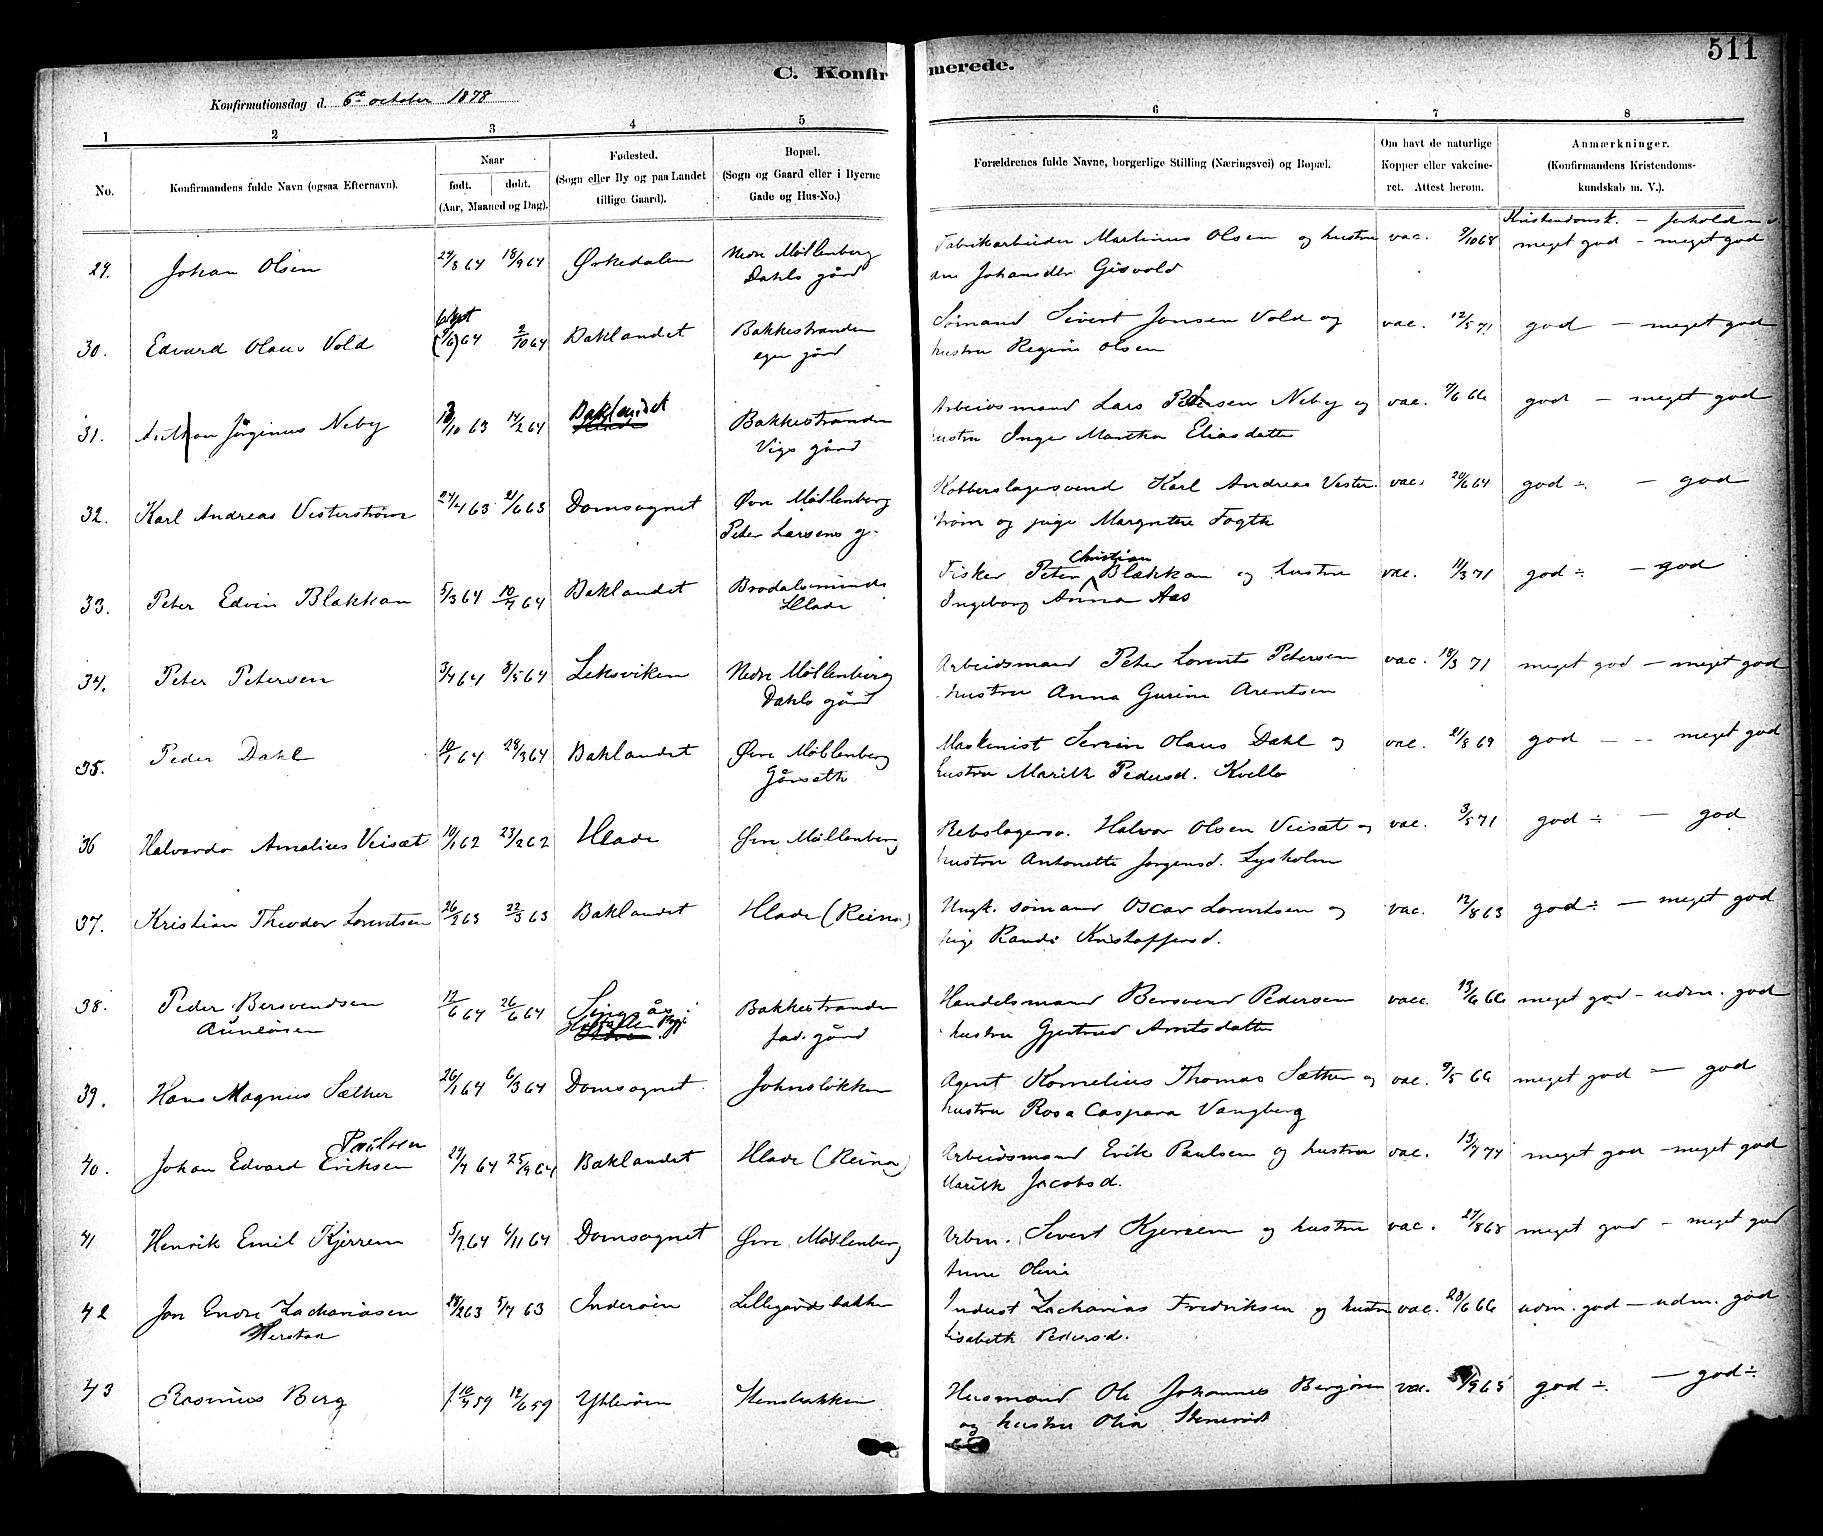 C. Konfirmerede.
511
Konfirmationsdag d. 6te october 1878
1 2 3 4 5 6 7 8
No.
Konfirmandens fulde Navn (ogsaa Efternavn).
Naar
født. døbt.
(Aar, Maaned og Dag).
Fødested.
(Sogn eller By og paa Landet
tillige Gaard).
Bopæl.
(Sogn og Gaard eller i Byerne
Gade og Hus-No.)
Forældrenes fulde Navne, borgerlige Stilling (Næringsvei) og Bopæl.
Om havt de naturlige
Kopper eller vakcine-
ret. Attest herom.
Anmærkninger.
(Konfirmandens Kristendoms-
kundskab m. V.).
Kristendomsk. – forhold
29. Johan Olsen 24/8 64 18/9 64 Ørkedalen Nedre Möllenberg Fabrikarbeider Martinus Olsen og hustru vac. 9/10 68 meget god – meget god
Dahls gård Johansdtr Gisvold
30. Edvard Olaus Vold (9/6) 64 2/10 64 Baklandet Bakkestranden Sömand Sivert Jonsen Vold og vac. 12/5 71 god – meget god
egen gård hustru Regine Olsen
31. Anton Jörginus Neby /10 63 14/2 64 Baklandet Bakkestranden Arbeidsmand Lars Petersen Neby og vac. 7/6 66 god – meget god
Vigs gård hustru Inger Martha Eliasdatter
32. Karl Andreas Vesterström 24/4 63 21/6 63 Domsognet Övre Möllenberg Kobberslagersvend Karl Andreas Vester- vac. 24/6 64 god ÷ – god
Peter Larsens g. ström og pige Margrethe Fogth
33. Peter Edvin Blakkan 5/3 64 10/7 64 Baklandet Brodalsminde Fisker Peter Christian Blakkan og hustru vac. 11/3 71 god ÷ – god
Hlade Ingeborg Anna Aas
34. Peter Petersen 3/4 64 8/5 64 Leksviken Nedre Möllenberg Arbeidsmand Peter Lorents Petersen vac. 18/3 71 meget god – meget god
Dahls gård hustru Anna Gurine Arentsen
35. Peder Dahl /1 64 28/3 64 Baklandet Övre Möllenberg Maskinist Sersin Olaus Dahl og vac. 21/8 69 god – meget god
hustru Marith Pedersd. Kvello
36 Halvardo Amalius Veisæt 10/1 62 23/2 62 Hlade Övre Möllenberg Rebslagersv. Halvor Olsen Veisæt og vac. 3/5 71 god ÷ – god
hustru Antonette Jörgensd. Lysholm
37. Kristian Theodor Lorentsen 26/2 63 22/3 63 Baklandet Hlade (Reina) Ungk. sömand Oscar Lorentsen og vac. 12/8 63 god ÷ – meget god
pige Randi Kristoffersd.
38. Peder Bersvendsen 12/6 64 26/6 64 Singsås Bakkestranden Handelsmand Bersvend Pedersen vacc. 13/6 66 meget god – udm. god
Aunlösen fad. gård hustru Gjertrud Arntsdatter
39. Hans Magnus Sæther 26/1 64 6/3 64 Domsognet Johnslökken Agent Kornelius Thomas Sæther og vac. 9/5 66 meget god – god
hustru Rosa Caspara Vangberg
Paulsen
40. Johan Edvard Eriksen 29/7 64 25/9 64 Baklandet Hlade (Reina) Arbeidsmand Erik Paulsen og hustru vac. 13/7 74 meget god – meget god
Marith Jacobsd.
41 Henrik Emil Kjerrem 5/9 64 6/11 64 Domsognet Övre Möllenberg Arbm. Sivert Kjerrem og hustru vac. 27/8 68 meget god – meget god
Anne Oline
42 Jon Endre Zachariasen 18/2 63 5/4 63 Inderöen Lillegårdsbakken Inderst Zacharias Fredriksen og hustru vac. 28/6 66 udm. god – udm. god
Herstad Lisabeth Pedersd.
43 Rasmus Berg 59 12/6 59 Ytteröen Stensbakken Husmand Ole Johannes Bergören vac. /9 65 god ÷ – god ÷
og hustru Olia Stenerodt